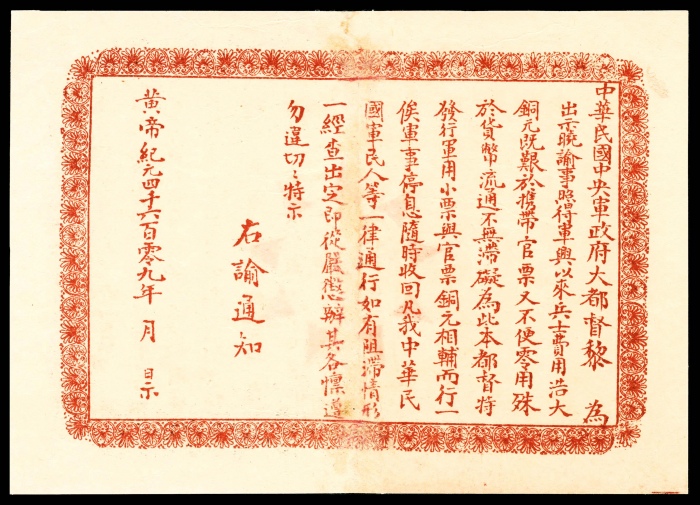 中華民國中央軍政府大都督黎　為
出示曉諭事照得軍興以來兵士費用浩大
銅元既艱於攜帶官票又不便零用殊
於貨幣流通不無滯礙為此本都督特
發行軍用小票與官票銅元相輔而行一
俟軍事停息隨時收回凡我中華民
國軍民人等一律通行如有阻滯情形
一經查出定即從嚴懲辦其各懍遵
勿違切切特示
右諭通知
黃帝紀元四千六百零九年　月　日示